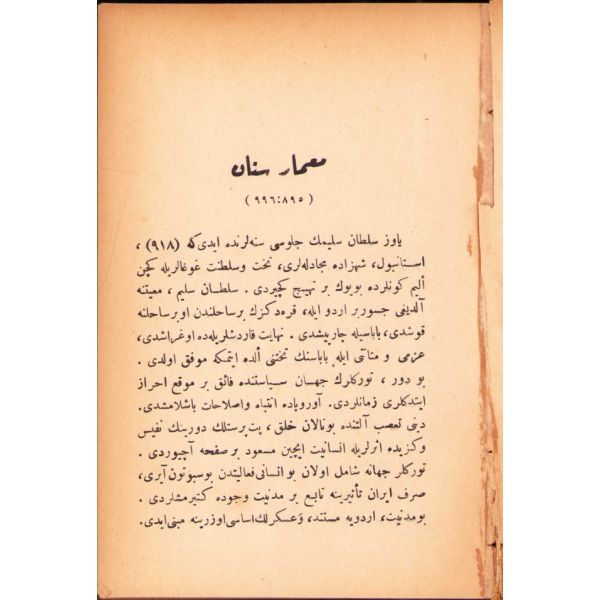 معمار سنان
( ٨٩٥ : ٩٩٦ )
ياوز سلطان سليمك جلوسی سنه‌لرنده ايدی كه (٩١٨) ،
استانبول، شهزاده مجادله‌لری، تخت وسلطنت غوغالريله كچن
اليم كونلرده بويوك بر تهييج كچيردی . سلطان سليم ، معيتنه
آلديغی جسور بر اردو ايله، قره‌دكزك بر ساحلندن او بر ساحلنه
قوشدی، باباسيله چارپيشدی . نهايت قارداشلريله‌ده اوغراشدی،
عزمی و متانتی ايله باباسنك تختنی الده ايتمكه موفق اولدی .
بو دور ، توركلرك جهان سياستنده فائق بر موقع احراز
ايتدكلری زمانلردی. آوروپاده انتباه واصلاحات باشلامشدی.
دينی تعصب آلتنده بونالان خلق ، بت پرستلك دورينك نفيس
وكزيده اثرلريله انسانيت ايچين مسعود بر صفحه آچيوردی .
توركلر جهانه شامل اولان بو انسانی فعاليتدن بوسبوتون آيری،
صرف ايران تأثيرينه تابع بر مدنيت وجوده كتيرمشلردی .
بو مدنيت، اردويه مستند، وعسكرلك اساسی اوزرينه مبنی ايدی.